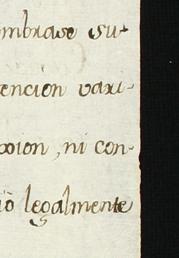 ombrase su-
tencion vari-
xion, ni con-
ió legalmente